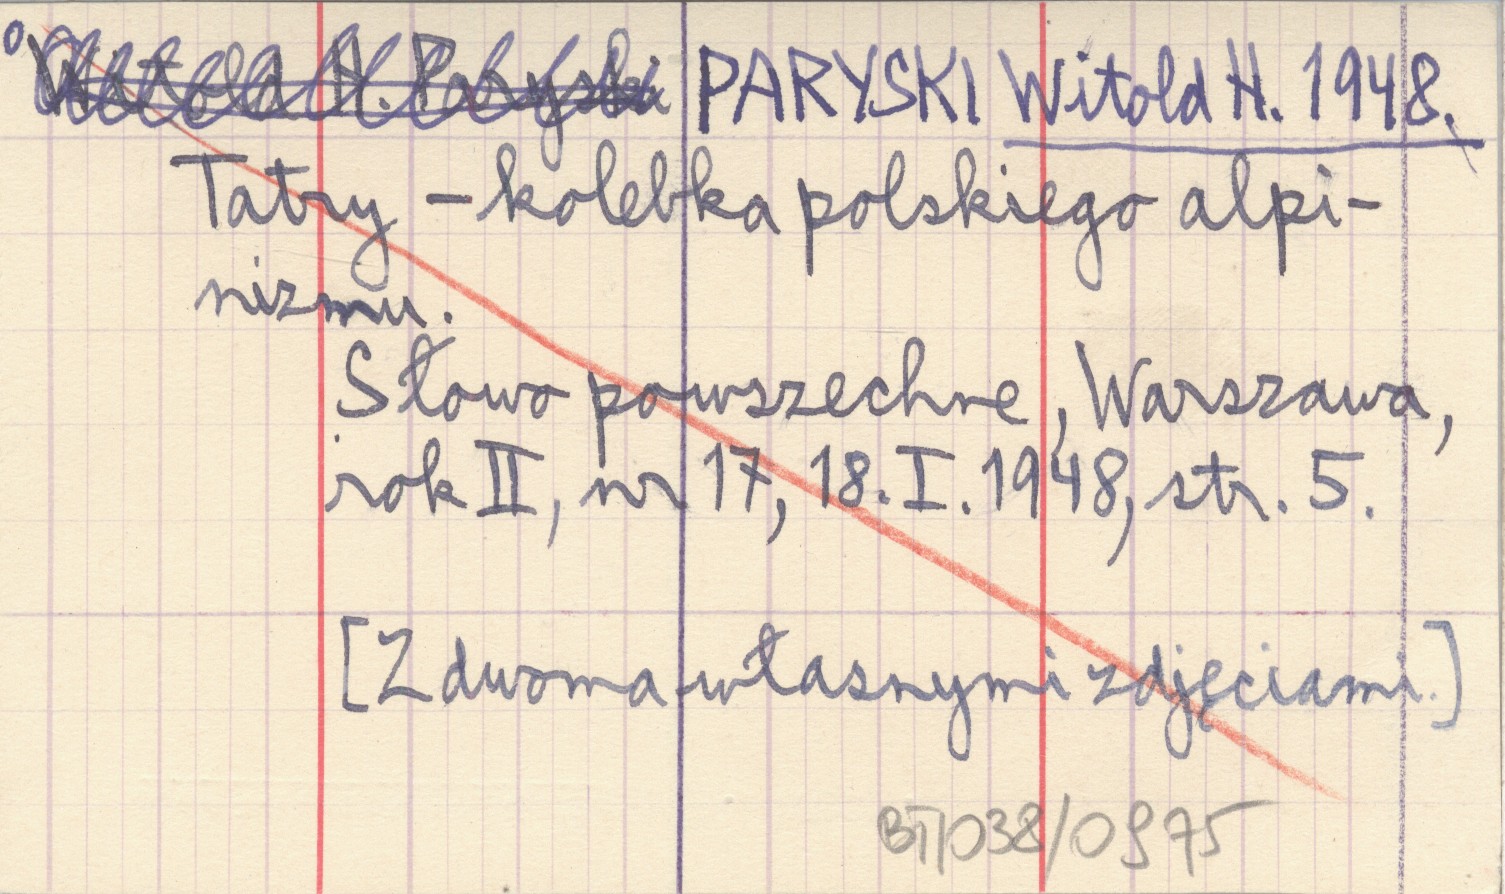 ° Witold H. Paryski PARYSKI Witold H. 1948.
Tatry – kolebka polskiego alpi-
nizmu.
Słowo powszechne, Warszawa,
rok II, nr 17, 18. I. 1948, str. 5.
[Z dwoma własnymi zdjęciami.]
BT/038/0975